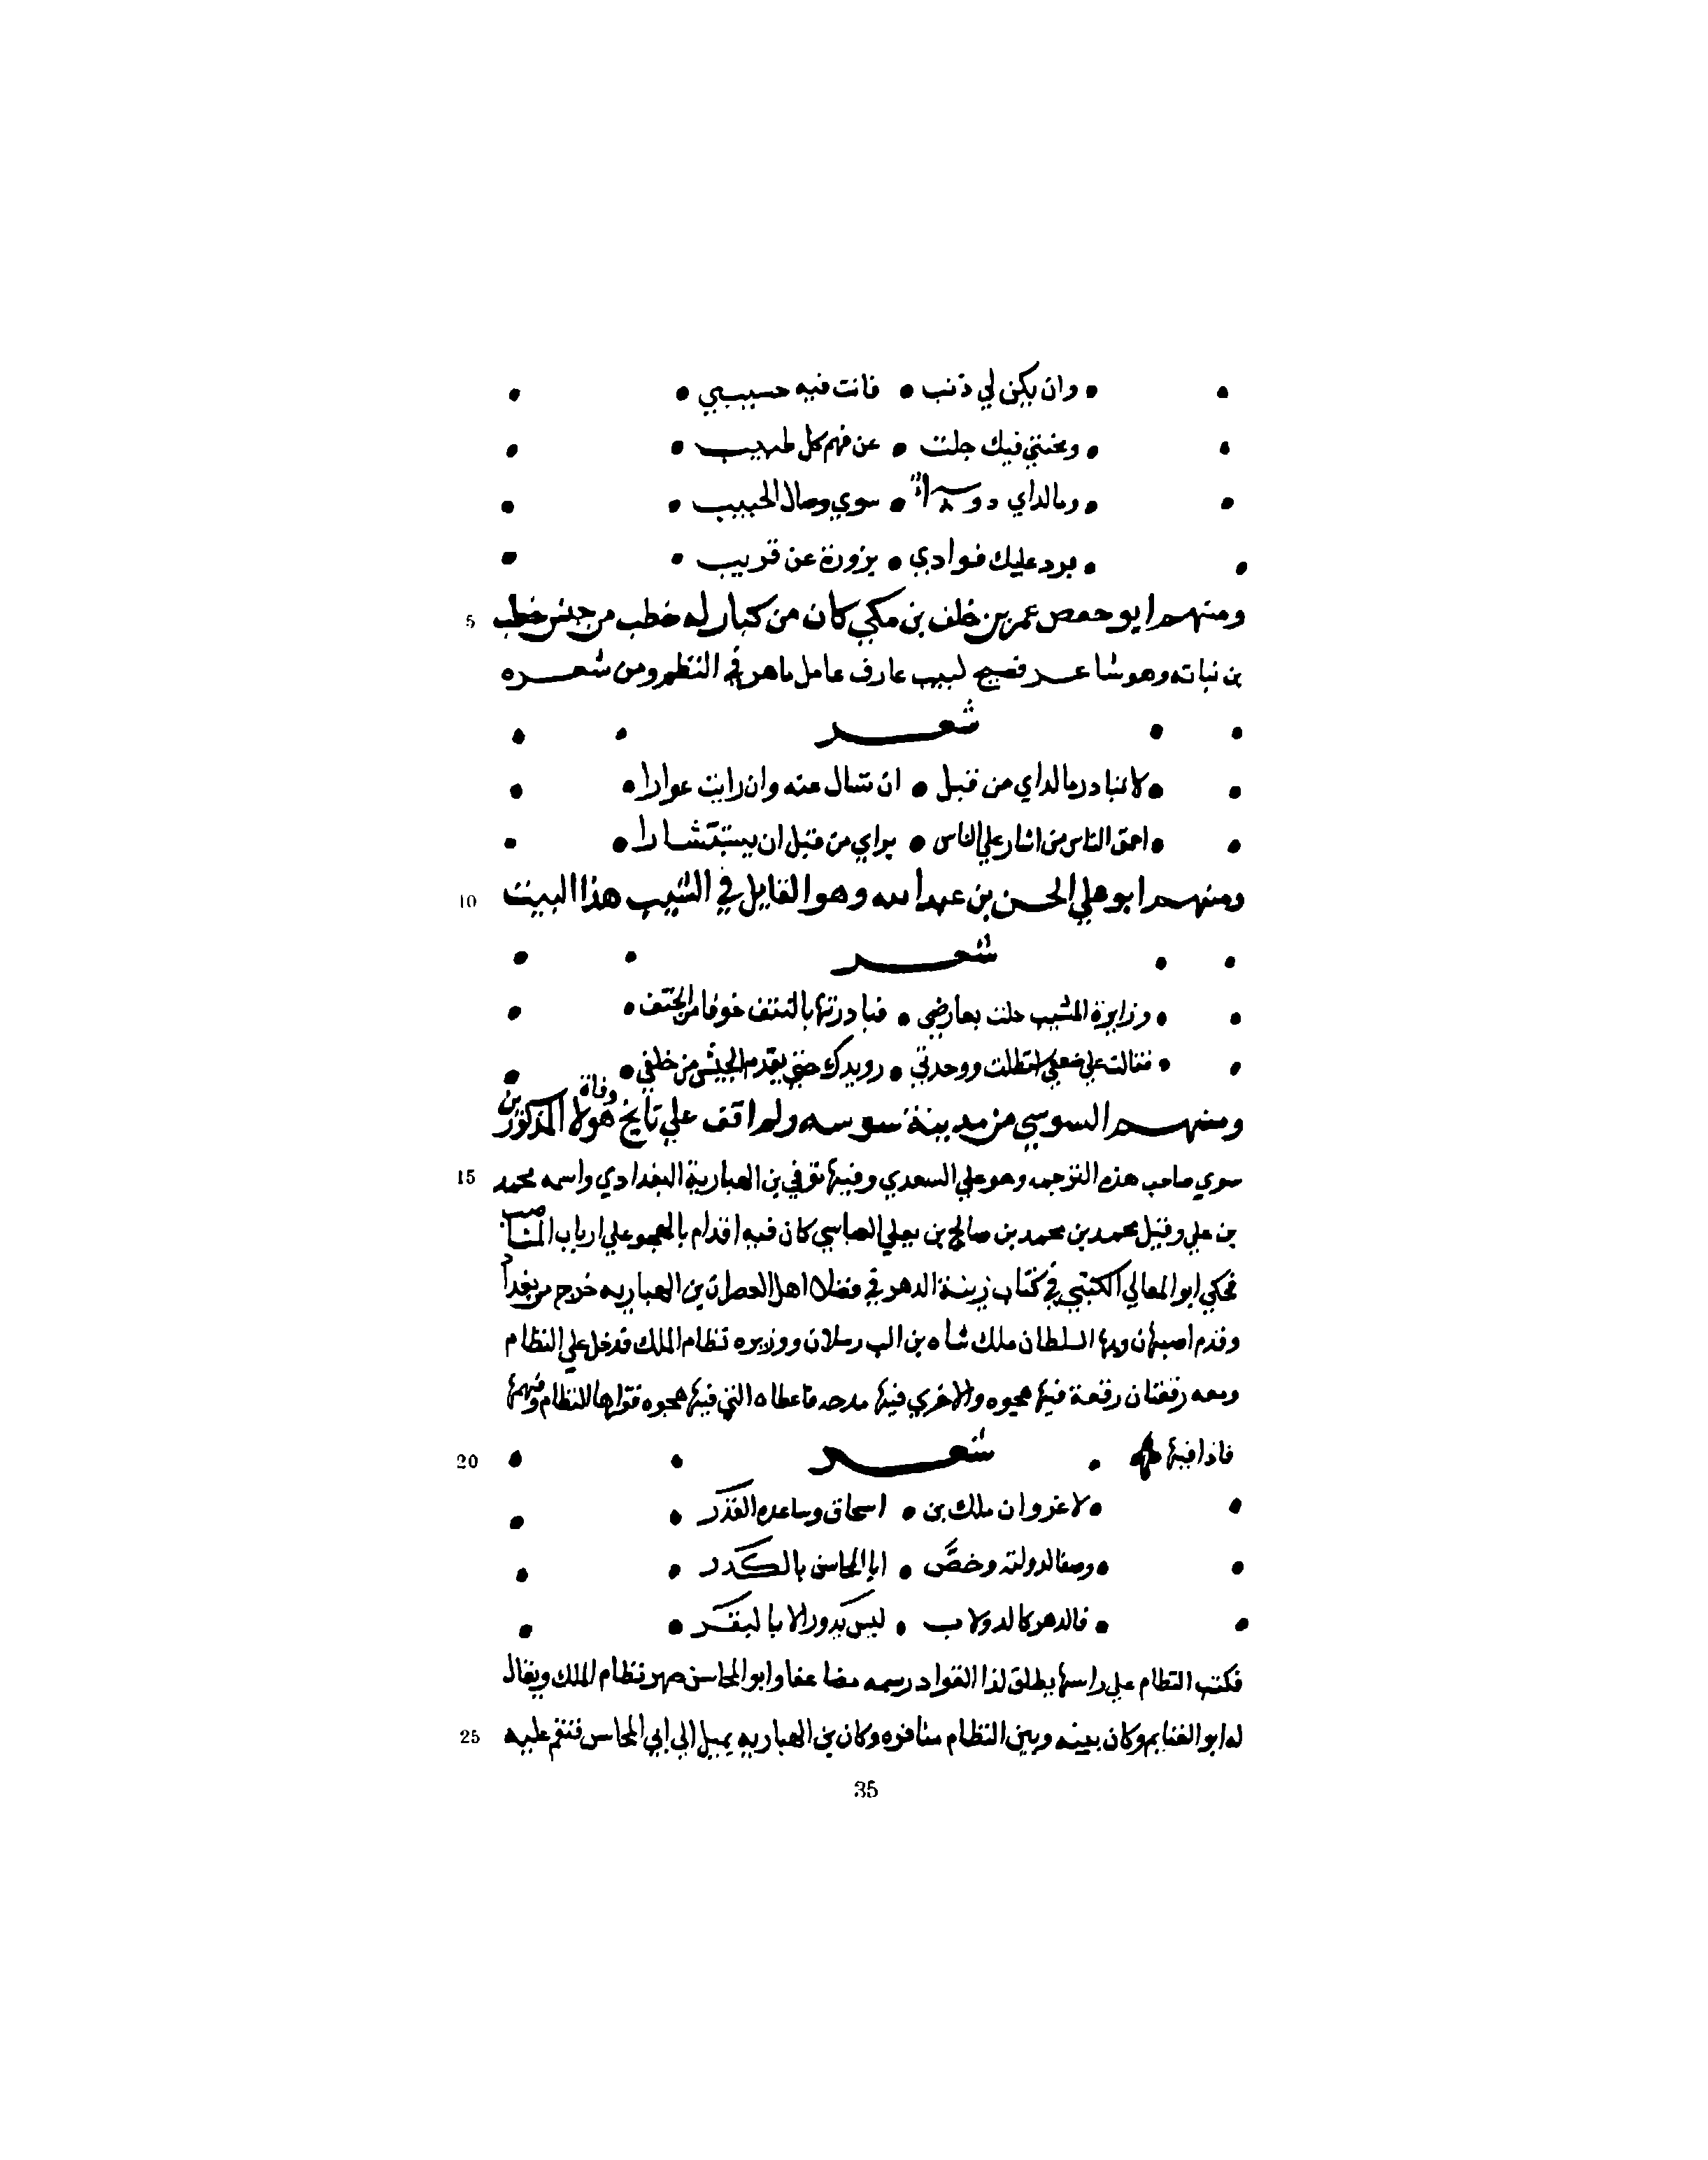 وان يكن لي ذنب • فانت فيه حسيبي
ومحنتي فيك جلت • عن فهم كل طبيب
وما لداي دواء • سوي وصال الحبيب
برد عليك فوادي • بزورة عن قريب
5 ومنهم ابو حفص عمر بن خلف بن مكي كان من كبار له خطب من جنس خطب
بن نباته وهو شاعر فصيح لبيب عارف عامل ماهر في النظم ومن شعره
شعر
لا تبادر بالداي من قبل • ان تسال عنه وان رايت عوارا
احمق الناس من اشار علي الناس • براي من قبل ان يستشارا
10 ومنهم ابو علي الحسن بن عبد الله وهو القايل في الشيب هذا البيت
شعر
وزايرة المشيب حلت بعارضي • فبادرتها بالنتف خوفا من الحتف
فقالت علي ضعفي استطلت ووحدتي • رويدك حتي يقدم الجيش من خلفي
ومنهم السوسي من مدينة سوسه ولم اقف علي تاريخ وفاة هولا المذكورين
15 سوي صاحب هذه الترجمه وهو علي السعدي وفيها توفي بن الهبارية البغدادي واسمه محمد
بن علي وقيل محمد بن محمد بن صالح بن يعلي العباسي كان فيه اقدام بالهجو علي ارباب المناصب
فحكي ابو المعالي الكتبي في كتاب زينة الدهر في فضلا اهل العصر ان بن الهباريه خرج من بغداد
وقدم اصبهان وبها السلطان ملك شاه بن الب رسلان ووزيره نظام الملك فدخل علي النظام
ومعه رقعتان رقعة فيها هجوه والاخري فيها مدحه فاعطاه التي فيها هجوه فقراها للنظام وفهمها
20 فاذا فيها شعر
لا غرو ان ملك بن • اسحاق وساعده القدر
وصفا لدولته وخصّ • ابا المحاسن بالكدر
فالدهر كالدولاب • ليس يدور الا بالبقر
فكتب النظام علي راسها يطلق لذا القواد رسمه مضاعفا وابو المحاسن صهر نظام الملك ويقال
25 له ابو الغنايم وكان بينه وبين النظام منافره وكان بن الهباريه يميل الي ابي المحاسن فنقم عليه
35